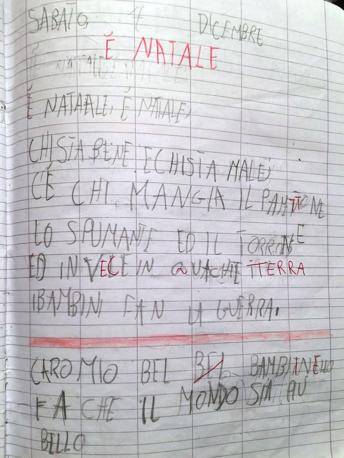 SABATO 1 DICEMBRE
È NATALE
È NATAALE, È NATALE,
CHI STA BENE, E CHI STA MALE,
C'È CHI MANGIA IL PANTTONE
LO SPUMANTE ED IL TORRONE
ED INVELE IN QUACHE TTERRA
IBAMBINI FAN LA GUERRA.
CARO MIO BEL BEL BAMBINELLO
FA CHE IL MONDO SIA AU
BELLO